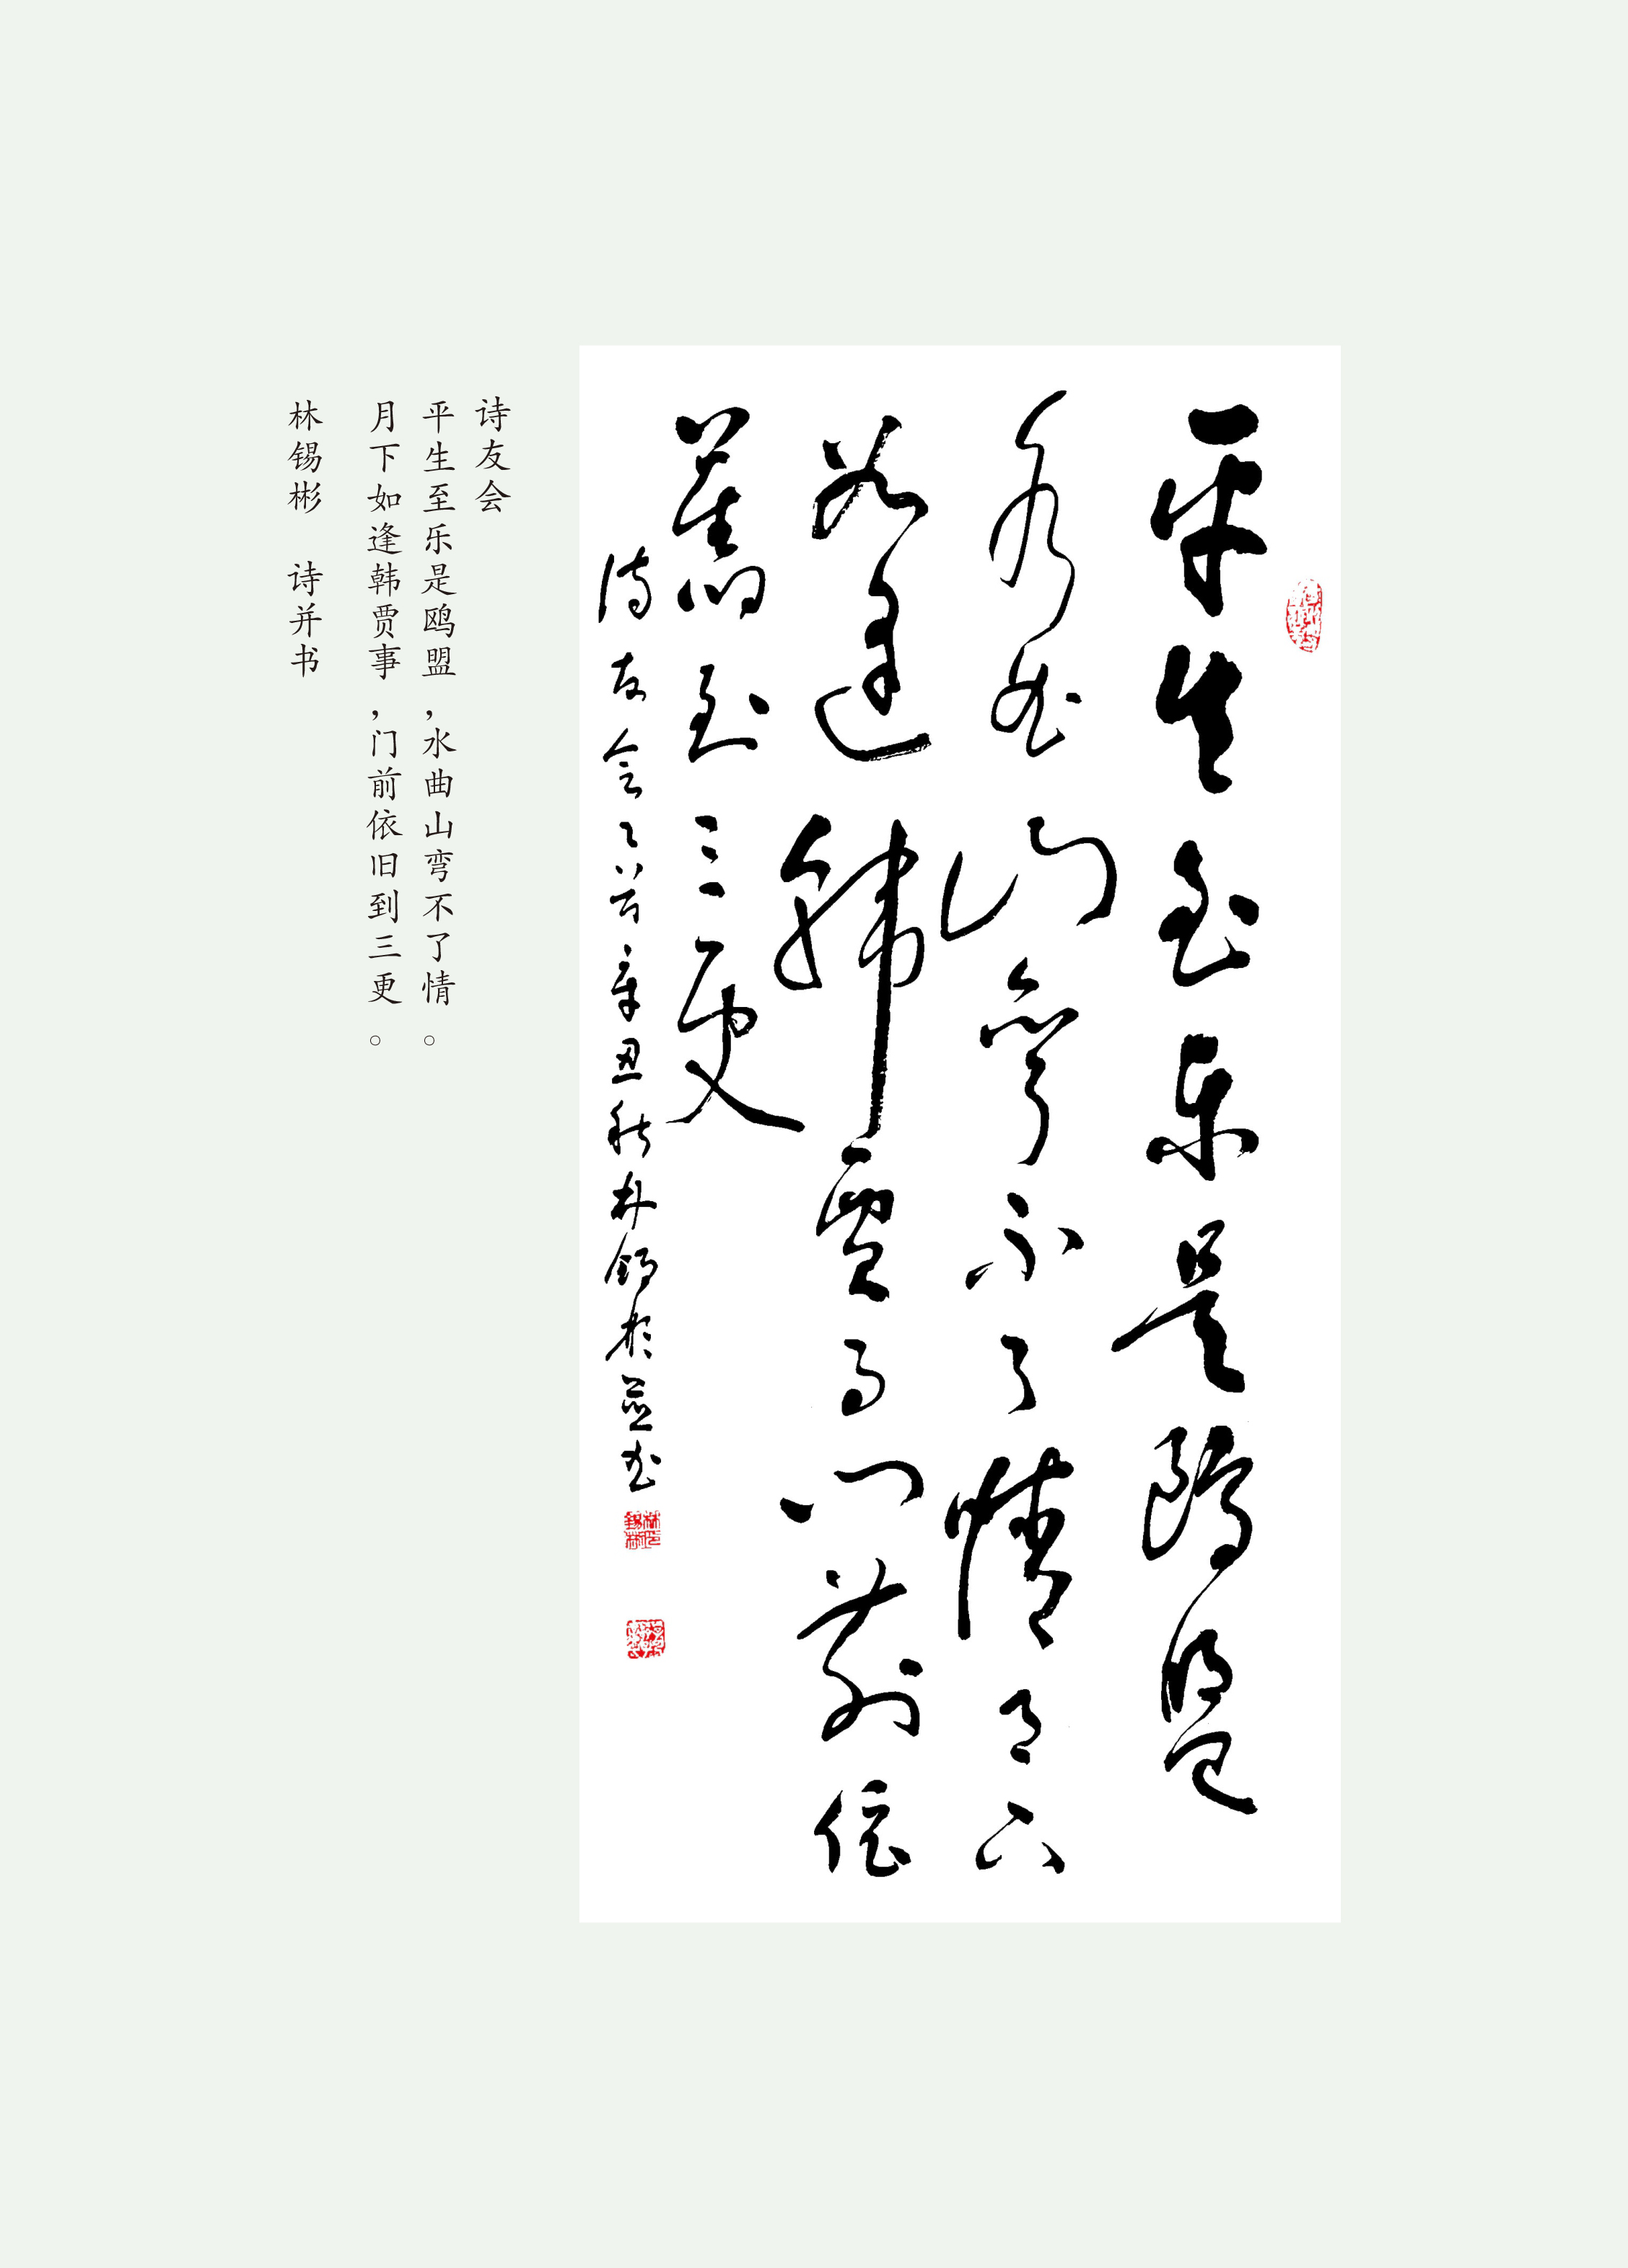 平生至乐是鸥盟
水曲山弯不了情月下
如逢韩贾事门前依
旧到三更
诗友会之一首辛丑秋林锡彬并书
诗友会
平生至乐是鸥盟，水曲山弯不了情。
月下如逢韩贾事，门前依旧到三更。
林锡彬　诗并书